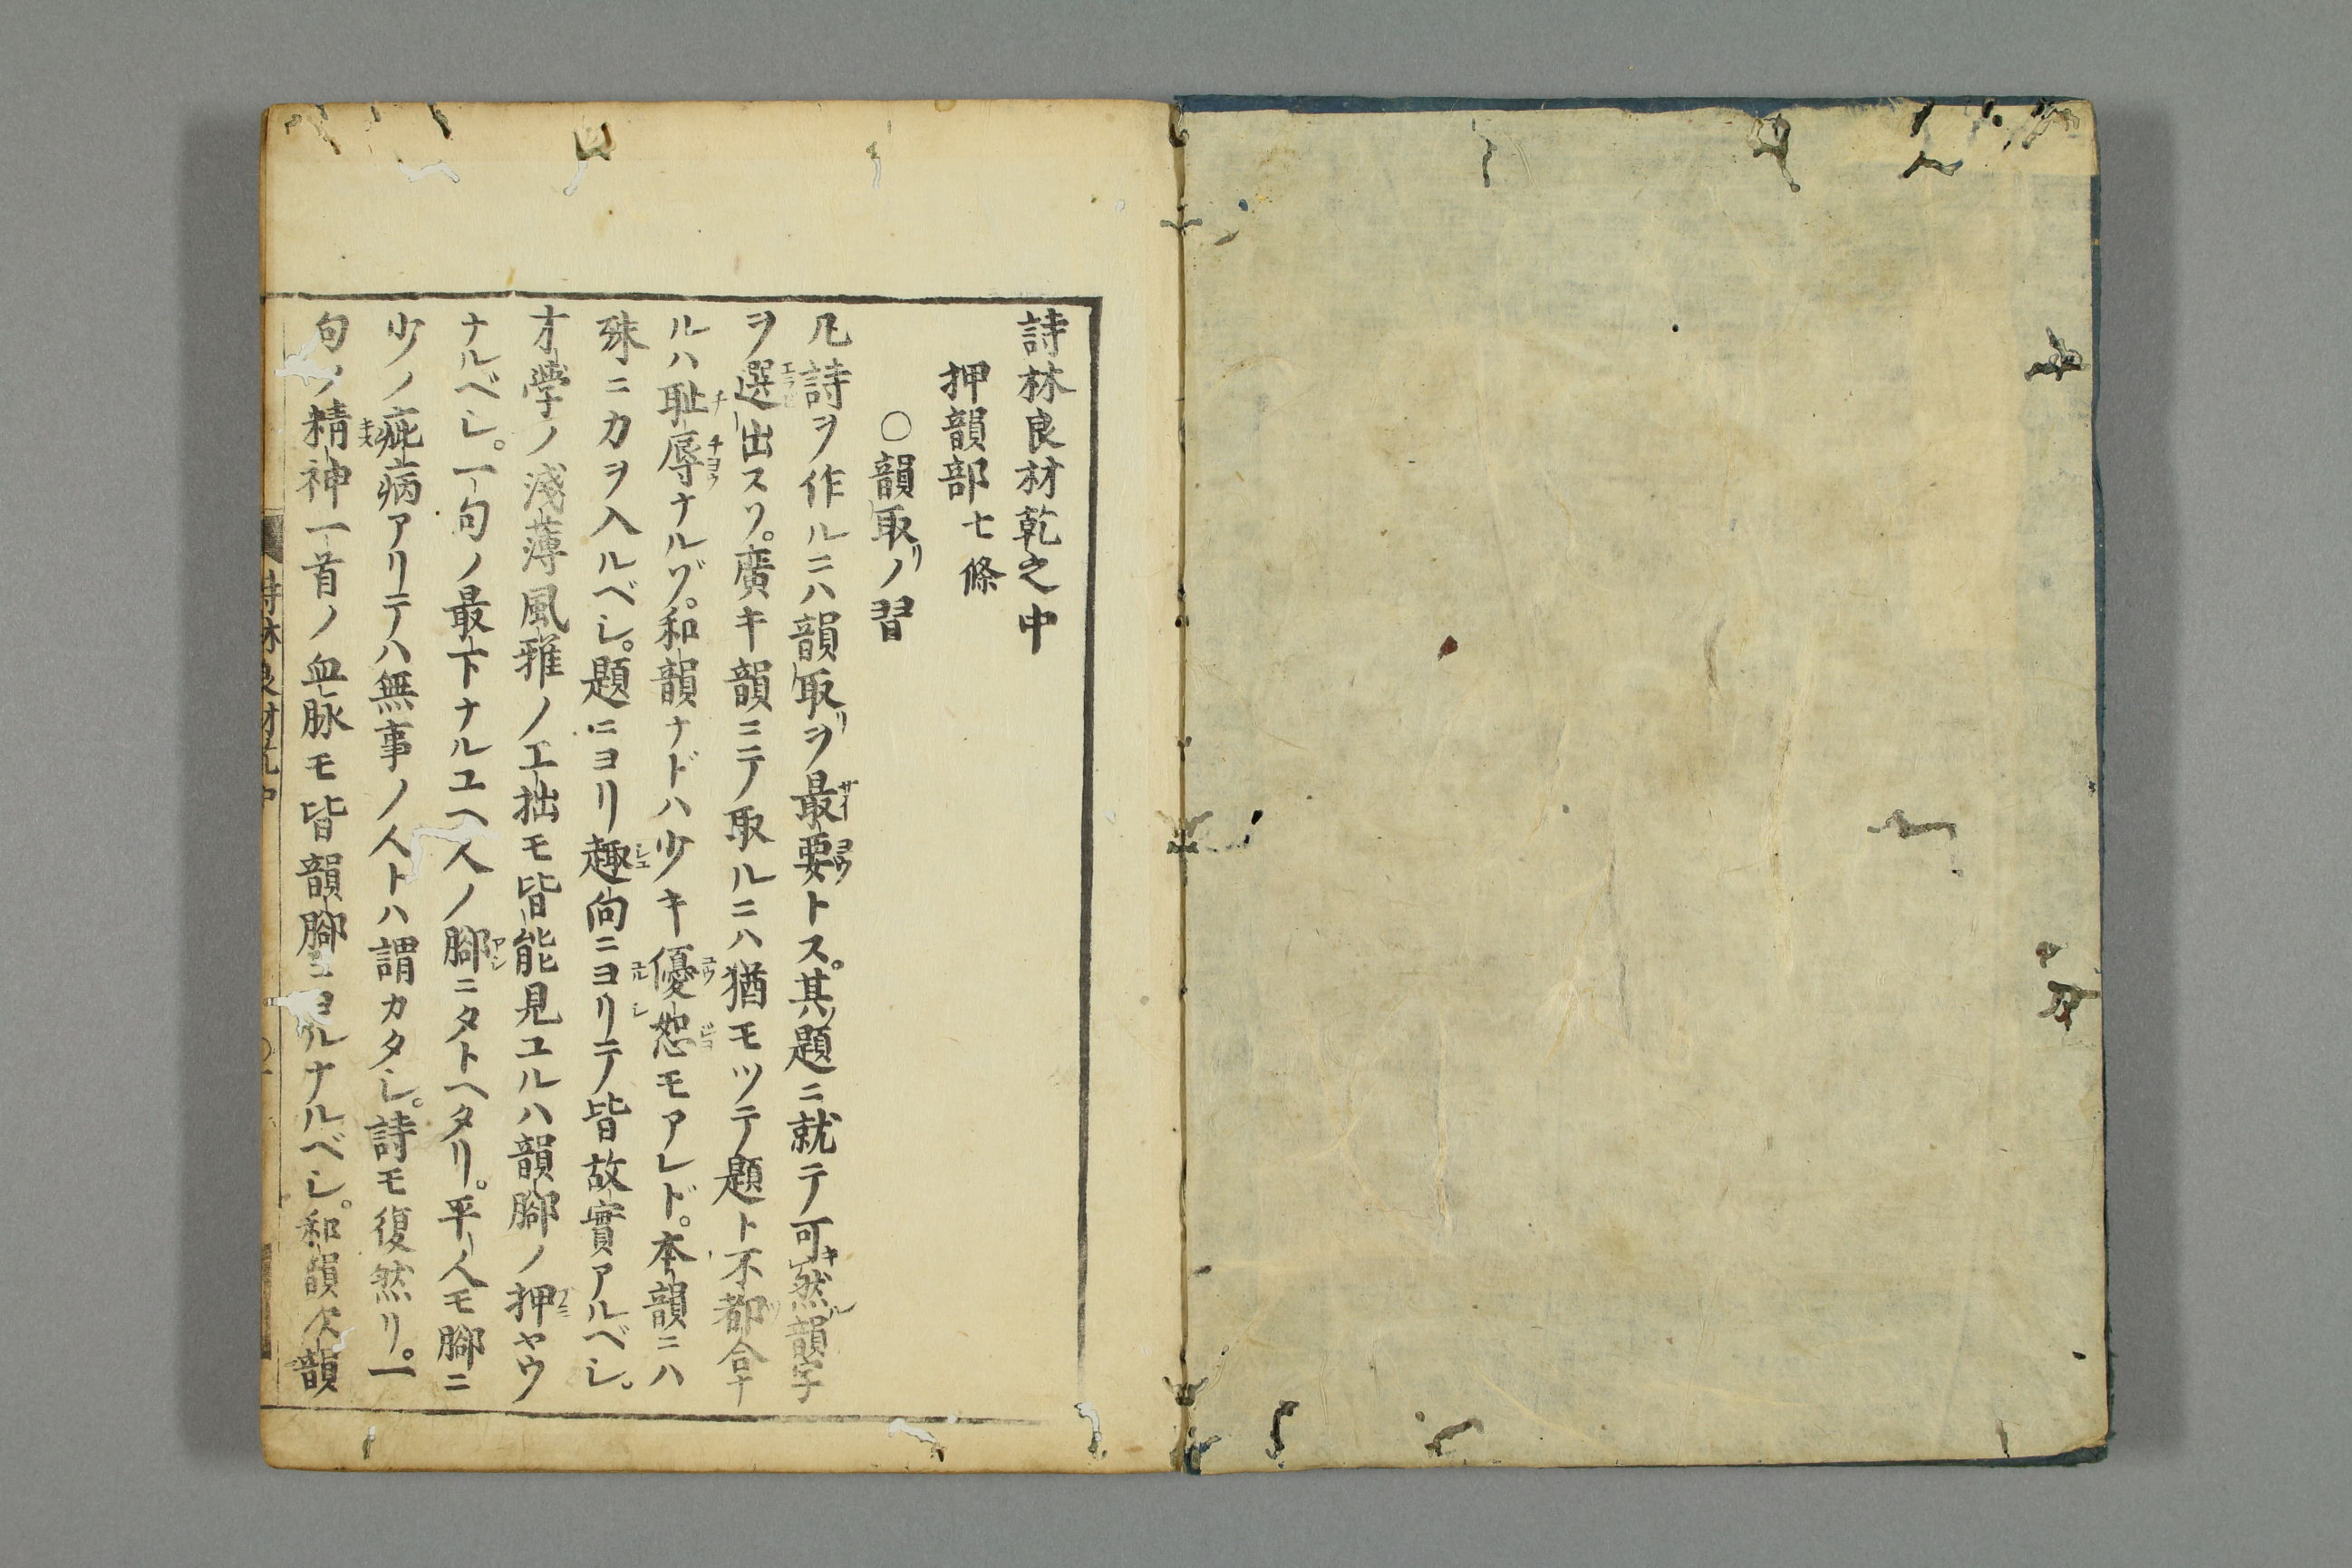 詩林良材乾之中
押韻部七條
○韻取リノ習
凡詩ヲ作ルニハ韻取リヲ最要トス。其題ニ就テ可キ然ル韻字
ヲ選出スヿ。廣キ韻ニテ取ルニハ猶モツテ題ト不都合ナ
ルハ耻辱ナルヅ。和韻ナドハ少キ優恕モアレド。本韻ニハ
殊ニカヲ入ルベシ。題ニヨリ趣向ニヨリテ皆故實アルベシ。
才學ノ淺薄風雅ノ工拙モ皆能見ユルハ韻腳ノ押ヤウ
ナルベシ。一句ノ最下ナルユヘ人ノ腳ニタトヘタリ。平人モ腳ニ
少ノ疵病アリテハ無事ノ人トハ謂カタシ。詩モ復然リ。一
句ノ精神一首ノ血脉モ皆韻腳ニヨルナルベシ。和韻次韻